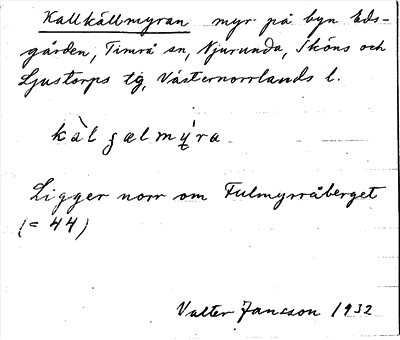 Kallkällmyran myr på byn Eds-
gården, Timrå sn, Njurunda, Sköns och
Ljustorps tg, Västernorrlands l.
kàl ɟælmý̨ra
Ligger norr om Fulmyrråberget
(= 44)
Valter Jansson 1932